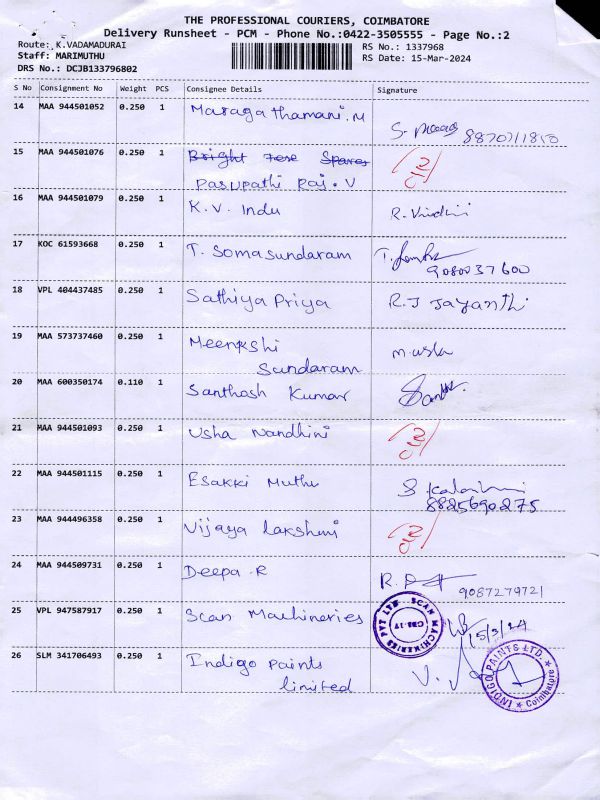 THE PROFESSIONAL COURIERS, COIMBATORE
Delivery Runsheet - PCM - Phone No.:0422-3505555 - Page No.:2
Route: K.VADAMADURAI RS No.: 1337968
Staff: MARIMUTHU RS Date: 15-Mar-2024
DRS No.: DCJB133796802
S No Consignment No Weight PCS Consignee Details Signature
14 MAA 944501052 0.250 1 Maragathamani.M
S. 8870711810
15 MAA 944501076 0.250 1 Bright Spares
Pasupathi Raj. V
16 MAA 944501079 0.250 1 K.V. Indu R. Vindhini
17 KOC 61593668 0.250 1 T. Somasundaram T.
9080037600
18 VPL 404437485 0.250 1 Sathiya Priya R.J Jayanthi
19 MAA 573737460 0.250 1 Meenkshi
Sundaram
20 MAA 600350174 0.110 1 Santhosh Kumar
21 MAA 944501093 0.250 1 Usha Nandhini
22 MAA 944501115 0.250 1 Esakki Muthu S
8825690275
23 MAA 944496358 0.250 1 Vijaya Lakshmi
24 MAA 944509731 0.250 1 Deepa.R R.
9087279721
25 VPL 947587917 0.250 1 Scan Machineries SCAN MACHINERIES PVT LTD CBE-17
15/3/24
26 SLM 341706493 0.250 1 Indigo Paints V.
limited
INDIGO PAINTS LTD. * Coimbatore *